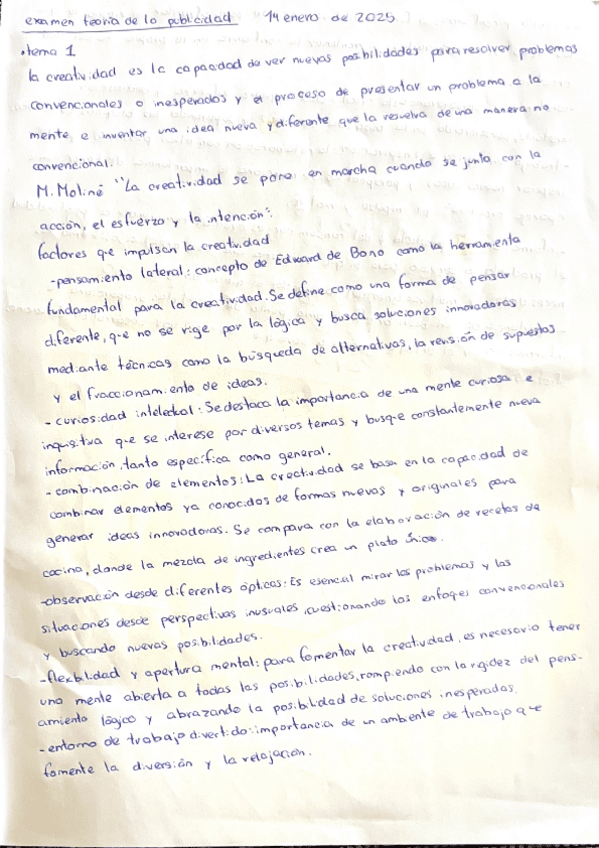 examen teoría de la publicidad 14 enero de 2025
•tema 1
la creatividad es la capacidad de ver nuevas posibilidades para resolver problemas
convencionales o inesperados y el proceso de presentar un problema a la
mente e inventar una idea nueva y diferente que la resuelva de una manera no
convencional.
M. Moliné "La creatividad se pone en marcha cuando se junta con la
acción, el esfuerzo y la intención".
factores que impulsan la creatividad
-pensamiento lateral: concepto de Edward de Bono como la herramienta
fundamental para la creatividad. Se define como una forma de pensar
diferente, que no se rige por la lógica y busca soluciones innovadoras
mediante técnicas como la búsqueda de alternativas, la revisión de supuestos
y el fraccionamiento de ideas.
- curiosidad intelectual: Se destaca la importancia de una mente curiosa e
inquisitiva que se interese por diversos temas y busque constantemente nueva
información, tanto específica como general.
- combinación de elementos: La creatividad se basa en la capacidad de
combinar elementos ya conocidos de formas nuevas y originales para
generar ideas innovadoras. Se compara con la elaboración de recetas de
cocina, donde la mezcla de ingredientes crea un plato único.
-observación desde diferentes ópticas: Es esencial mirar los problemas y las
situaciones desde perspectivas inusuales, cuestionando los enfoques convencionales
y buscando nuevas posibilidades.
-flexibilidad y apertura mental: para fomentar la creatividad, es necesario tener
una mente abierta a todas las posibilidades, rompiendo con la rigidez del pens-
amiento lógico y abrazando la posibilidad de soluciones inesperadas.
- entorno de trabajo divertido: importancia de un ambiente de trabajo que
fomente la diversión y la relajación.